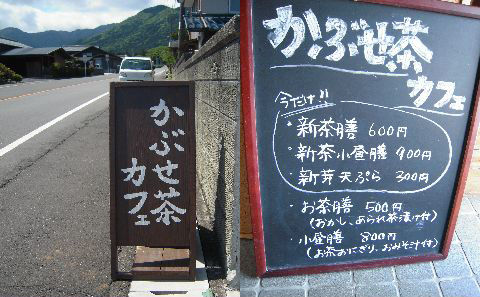 かぶせ茶
カフェ
かぶせ茶
カフェ
今だけ!!
・新茶膳 600円
・新茶小昼膳 900円
・新芽天ぷら 300円
・お茶膳 500円
(おかし、あられ茶漬け付)
・小昼膳 800円
(お茶おにぎり、おみそ汁付)